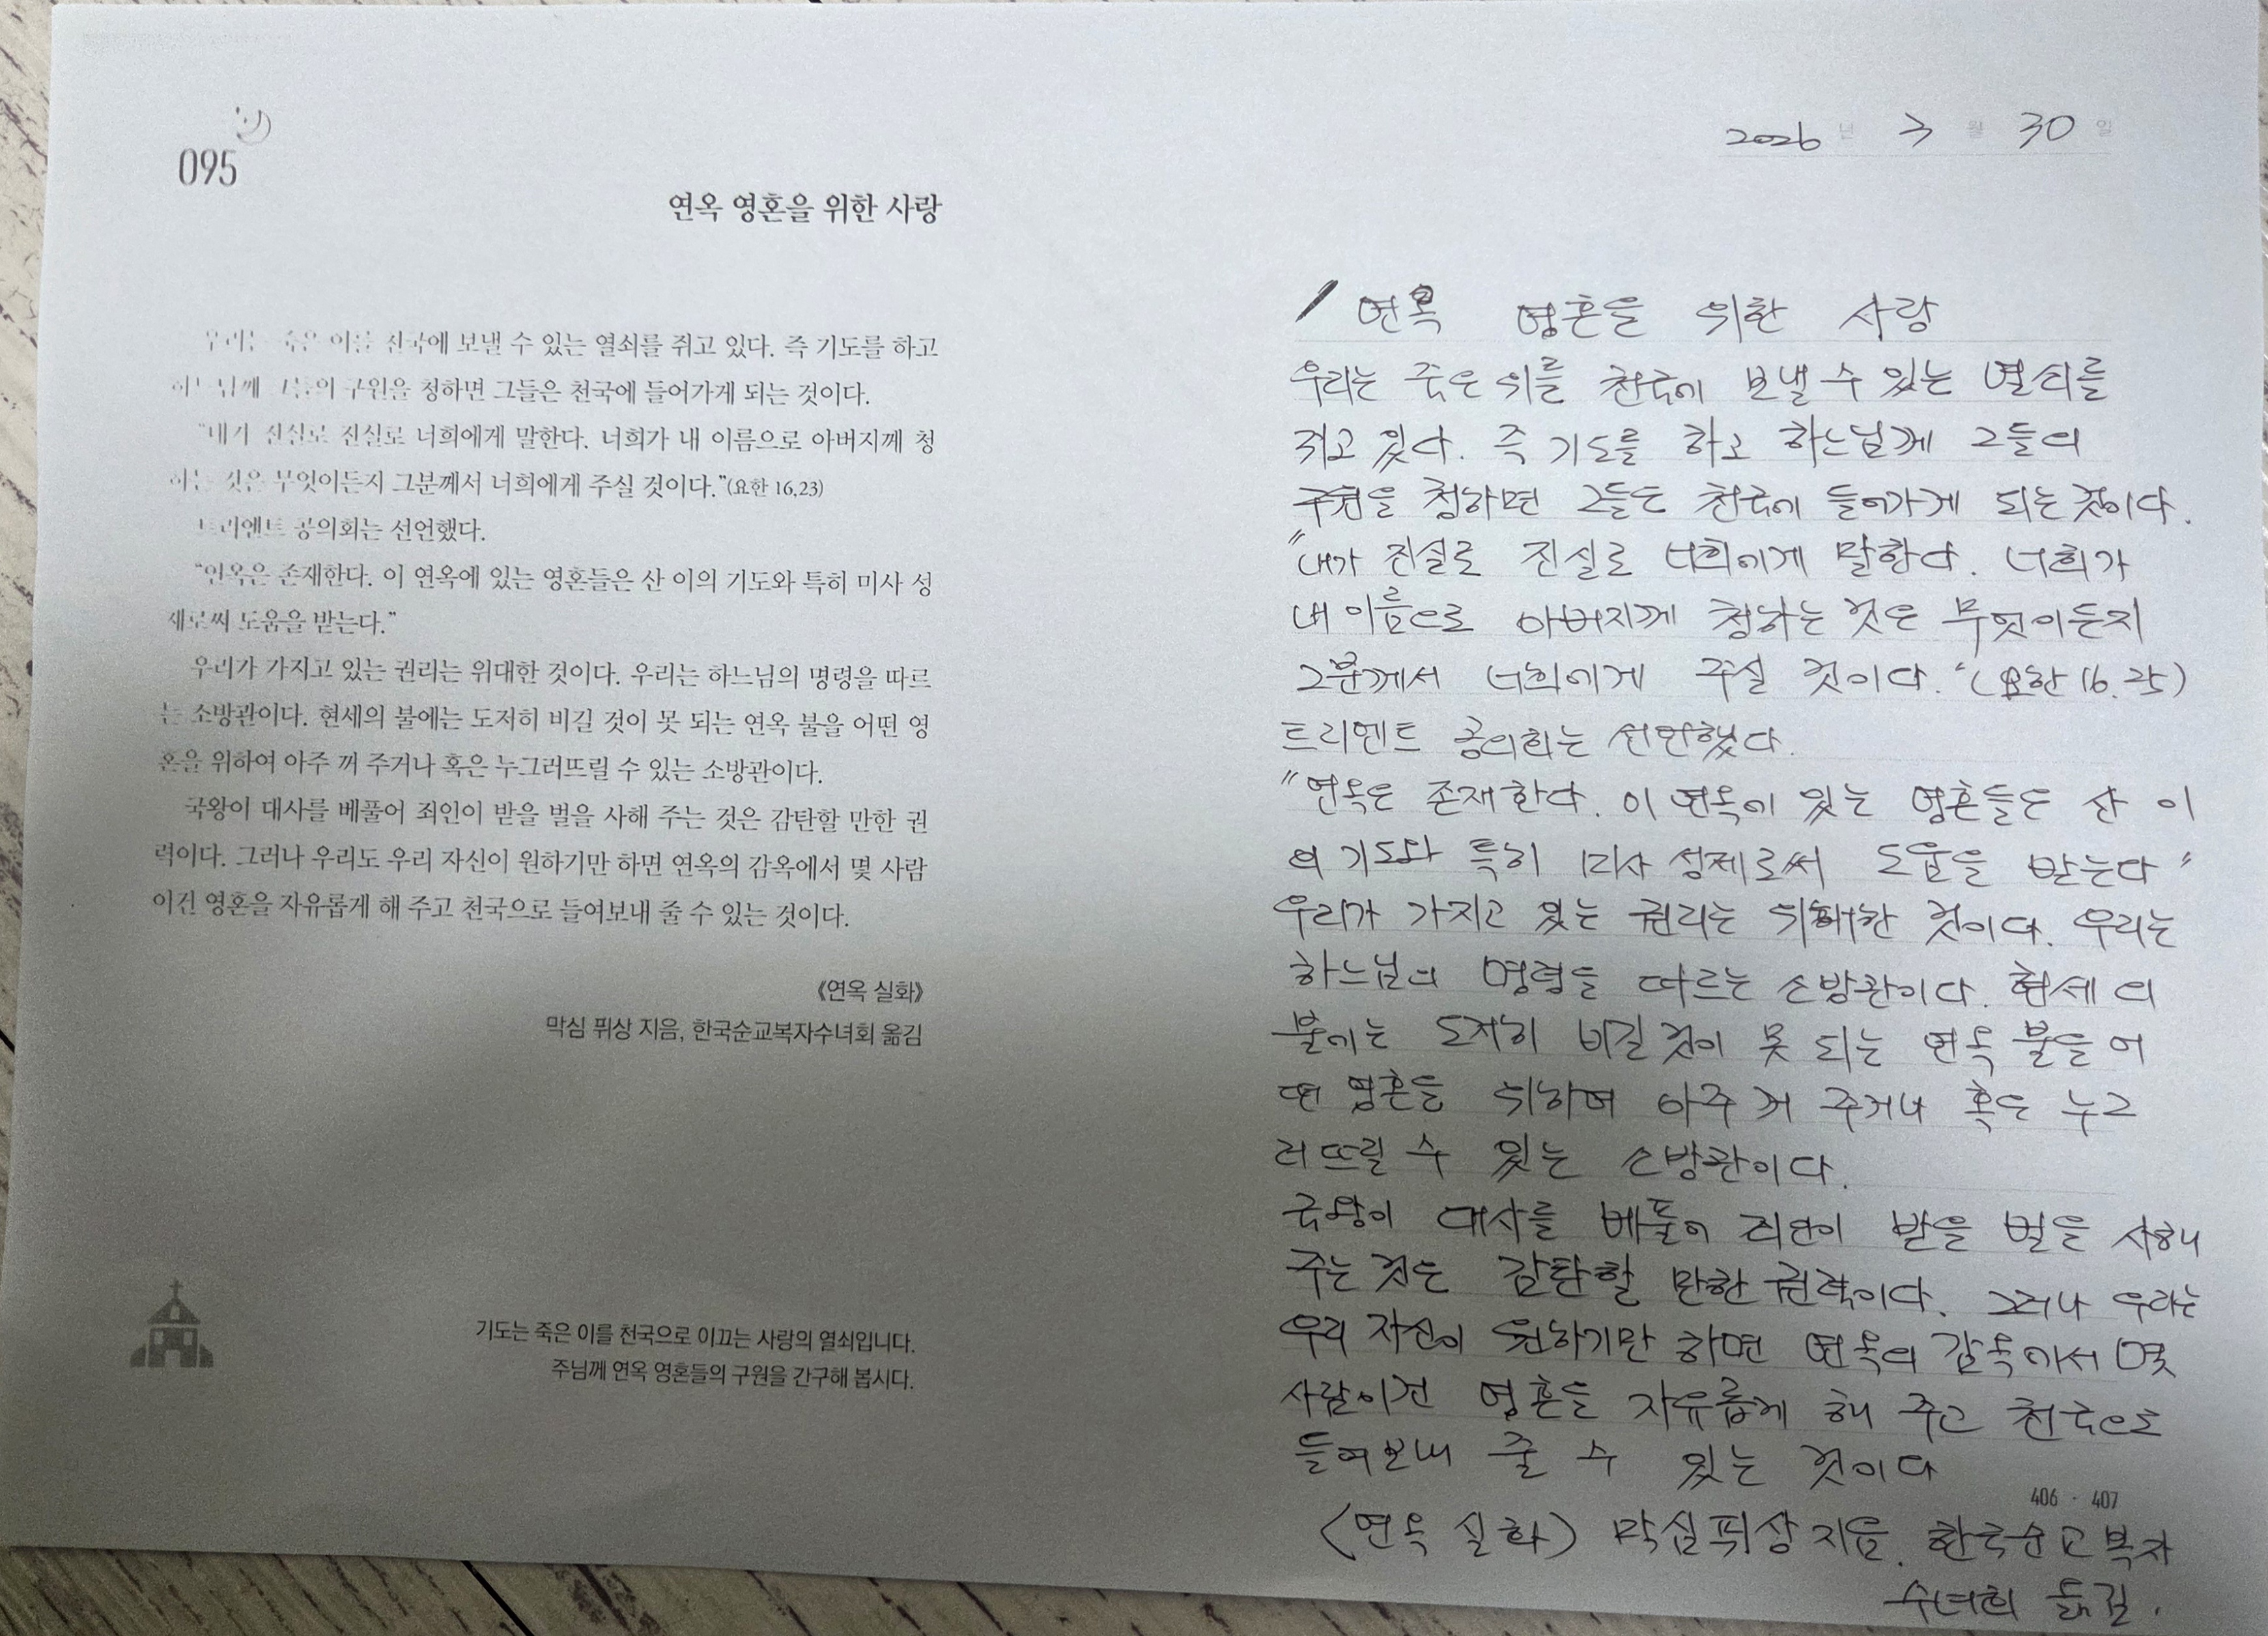 095
연옥 영혼을 위한 사랑
우리는 죽은 이를 천국에 보낼 수 있는 열쇠를 쥐고 있다. 즉 기도를 하고
하느님께 그들의 구원을 청하면 그들은 천국에 들어가게 되는 것이다.
“내가 진실로 진실로 너희에게 말한다. 너희가 내 이름으로 아버지께 청
하는 것은 무엇이든지 그분께서 너희에게 주실 것이다.”(요한 16,23)
트리엔트 공의회는 선언했다.
“연옥은 존재한다. 이 연옥에 있는 영혼들은 산 이의 기도와 특히 미사 성
제로써 도움을 받는다.”
우리가 가지고 있는 권리는 위대한 것이다. 우리는 하느님의 명령을 따르
는 소방관이다. 현세의 불에는 도저히 비길 것이 못 되는 연옥 불을 어떤 영
혼을 위하여 아주 꺼 주거나 혹은 누그러뜨릴 수 있는 소방관이다.
국왕이 대사를 베풀어 죄인이 받을 벌을 사해 주는 것은 감탄할 만한 권
력이다. 그러나 우리도 우리 자신이 원하기만 하면 연옥의 감옥에서 몇 사람
이건 영혼을 자유롭게 해 주고 천국으로 들여보내 줄 수 있는 것이다.
《연옥 실화》
막심 퓌상 지음, 한국순교복자수녀회 옮김
기도는 죽은 이를 천국으로 이끄는 사랑의 열쇠입니다.
주님께 연옥 영혼들의 구원을 간구해 봅시다.
2026 년 3 월 30 일
연옥 영혼을 위한 사랑
우리는 죽은 이를 천국에 보낼 수 있는 열쇠를
쥐고 있다. 즉 기도를 하고 하느님께 그들의
구원을 청하면 그들은 천국에 들어가게 되는 것이다.
“내가 진실로 진실로 너희에게 말한다. 너희가
내 이름으로 아버지께 청하는 것은 무엇이든지
그분께서 너희에게 주실 것이다.“(요한 16.25)
트리엔트 공의회는 선언했다.
“연옥은 존재한다. 이 연옥이 있는 영혼들은 산 이
의 기도와 특히 미사 성제로써 도움을 받는다”
우리가 가지고 있는 권리는 위대한 것이다. 우리는
하느님의 명령을 따르는 소방관이다. 현세의
불에는 도저히 비길 것이 못 되는 연옥 불을 어
떤 영혼을 위하여 아주 꺼 주거나 혹은 누그
러뜨릴 수 있는 소방관이다.
국왕이 대사를 베풀어 죄인이 받을 벌을 사해
주는 것은 감탄할 만한 권력이다. 그러나 우리는
우리 자신이 원하기만 하면 연옥의 감옥에서 몇
사람이건 영혼을 자유롭게 해 주고 천국으로
들여보내 줄 수 있는 것이다
406 · 407
(연옥 실화) 막심퓌상 지음. 한국순교복자
수녀회 옮김.